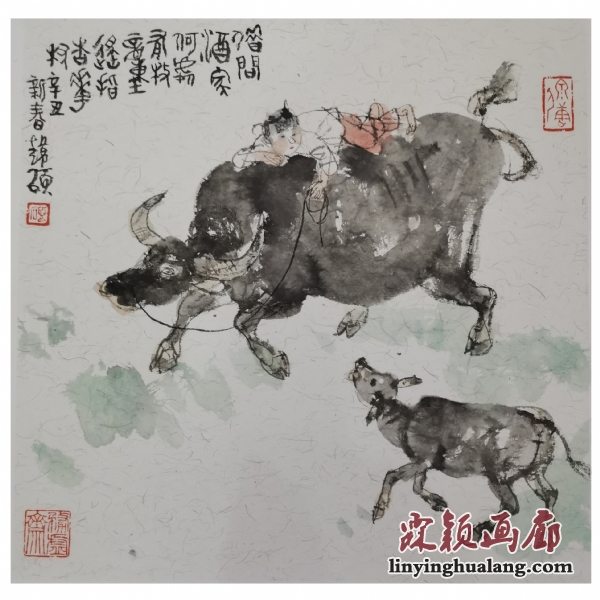 借問
酒家
何處
有牧
童
遙指
杏花
村辛丑
新春韓碩
霖颖画廊
linyinghualang.com